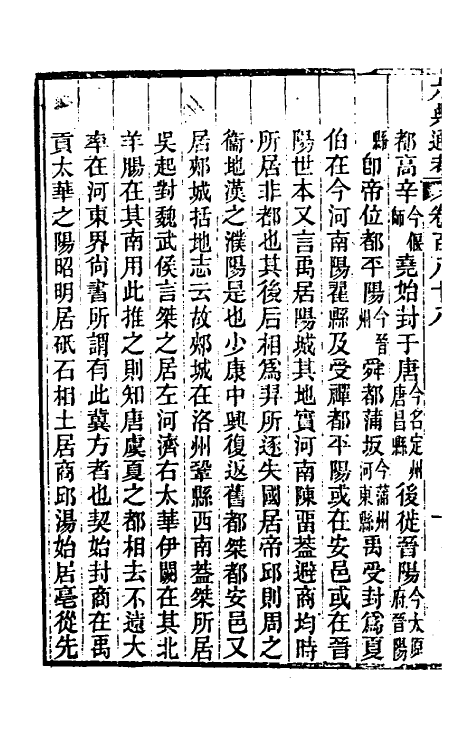 六典通考 卷百八十八
都高辛今偃師堯始封于唐今名定州唐昌縣後徙晉陽今太原府晉陽
縣即帝位都平陽今晉州舜都蒲坂今蒲州河東縣禹受封爲夏
伯在今河南陽翟縣及受禪都平陽或在安邑或在晉
陽世本又言禹居陽城其地實河南陳畱葢避商均時
所居非都也其後后相爲羿所逐失國居帝邱則周之
衞地漢之濮陽是也少康中興復返舊都桀都安邑又
居郟城括地志云故郟城在洛州鞏縣西南葢桀所居
吳起對魏武侯言桀之居左河濟右太華伊闕在其北
羊腸在其南用此推之則知唐虞夏之都相去不遠大
率在河東界尙書所謂有此冀方者也契始封商在禹
貢太華之陽昭明居砥石相土居商邱湯始居亳從先